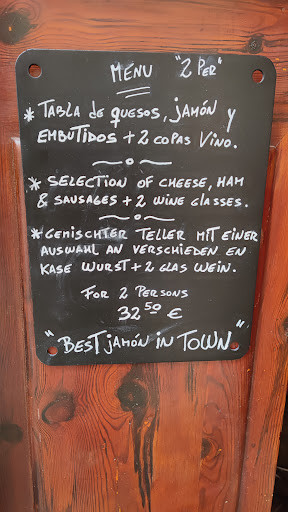 MENU "2 PER"
* TABLA de QUESOS, JAMÓN y
EMBÚTIDOS + 2 COPAS VINO.
* SELECTION OF CHEESE, HAM
& SAUSAGES + 2 WINE GLASSES.
* GEMISCHTER TELLER MIT EINER
AUSWAHL AN VERSCHIEDEN EN
KASE WURST + 2 GLAS WEIN.
FOR 2 PERSONS
32 50 €
"BEST JAMÓN IN TOWN"